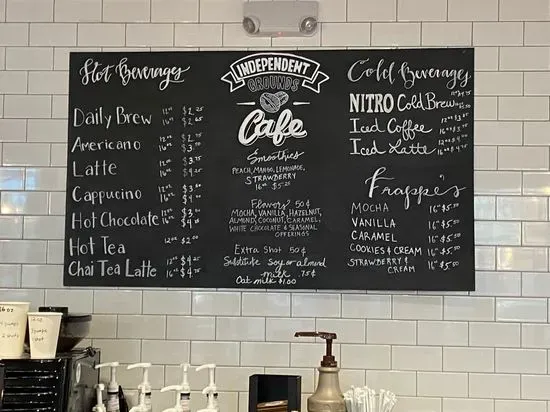 Hot Beverages
Daily Brew 12oz $2.25
16oz $2.65
Americano 12oz $2.75
16oz $3.00
Latte 12oz $3.75
16oz $4.25
Cappucino 12oz $3
16oz $4
Hot Chocolate 12oz $3
16oz $4
Hot Tea 12oz $2.00
Chai Tea Latte 12oz $4.25
16oz $4.75
INDEPENDENT
GROUNDS
Cafe
Smoothies
PEACH, MANGO, LEMONADE,
STRAWBERRY
16oz $5.25
Flavors 50¢
MOCHA, VANILLA, HAZELNUT,
ALMOND, COCONUT, CARAMEL,
WHITE CHOCOLATE & SEASONAL
OFFERINGS
Extra Shot 50¢
Substitute soy or almond
milk .75¢
Oat milk $1.00
Cold Beverages
NITRO Cold Brew
Iced Coffee
Iced Latte
Frappes
MOCHA 16oz $5.50
VANILLA 16oz $5.50
CARAMEL 16oz $5.50
COOKIES & CREAM 16oz $5.50
STRAWBERRY & 16oz $5.50
CREAM